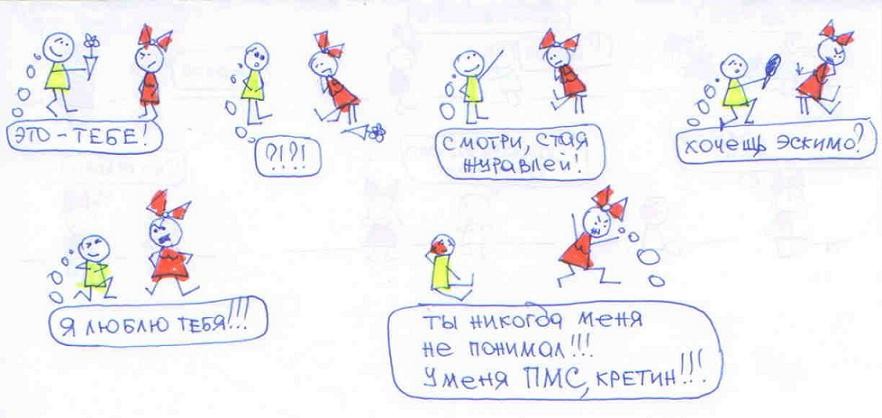 ЭТО - ТЕБЕ!
?!?!
СМОТРИ, СТАЯ
ЖУРАВЛЕЙ!
ХОЧЕЩЬ ЭСКИМО?
Я ЛЮБЛЮ ТЕБЯ!!!
ТЫ НИКОГДА МЕНЯ
НЕ ПОНИМАЛ!!!
У МЕНЯ ПМС, КРЕТИН!!!